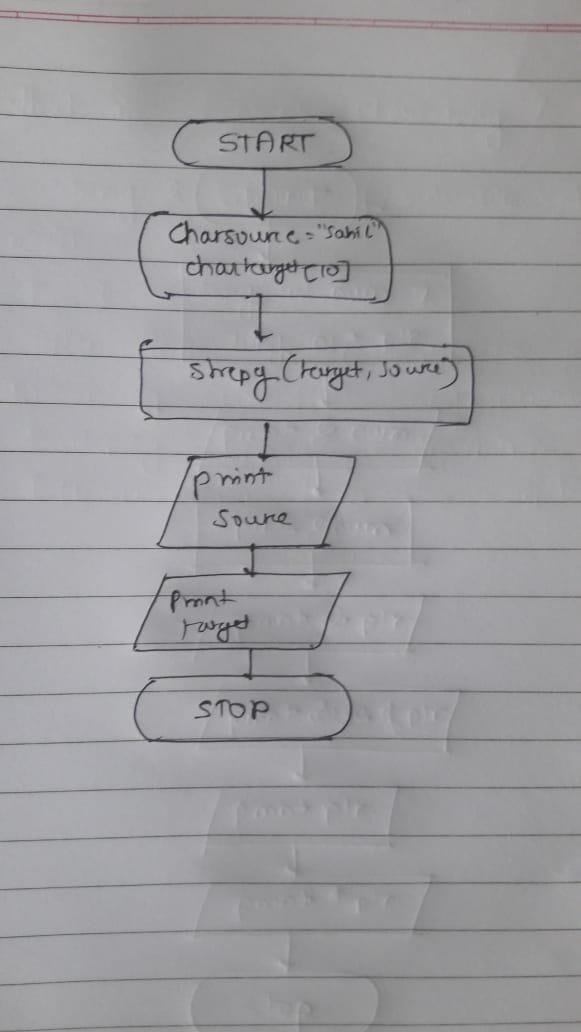 START
Charsource="Sahil"
chartarget[10]
strcpy(target, source)
print
source
print
target
STOP